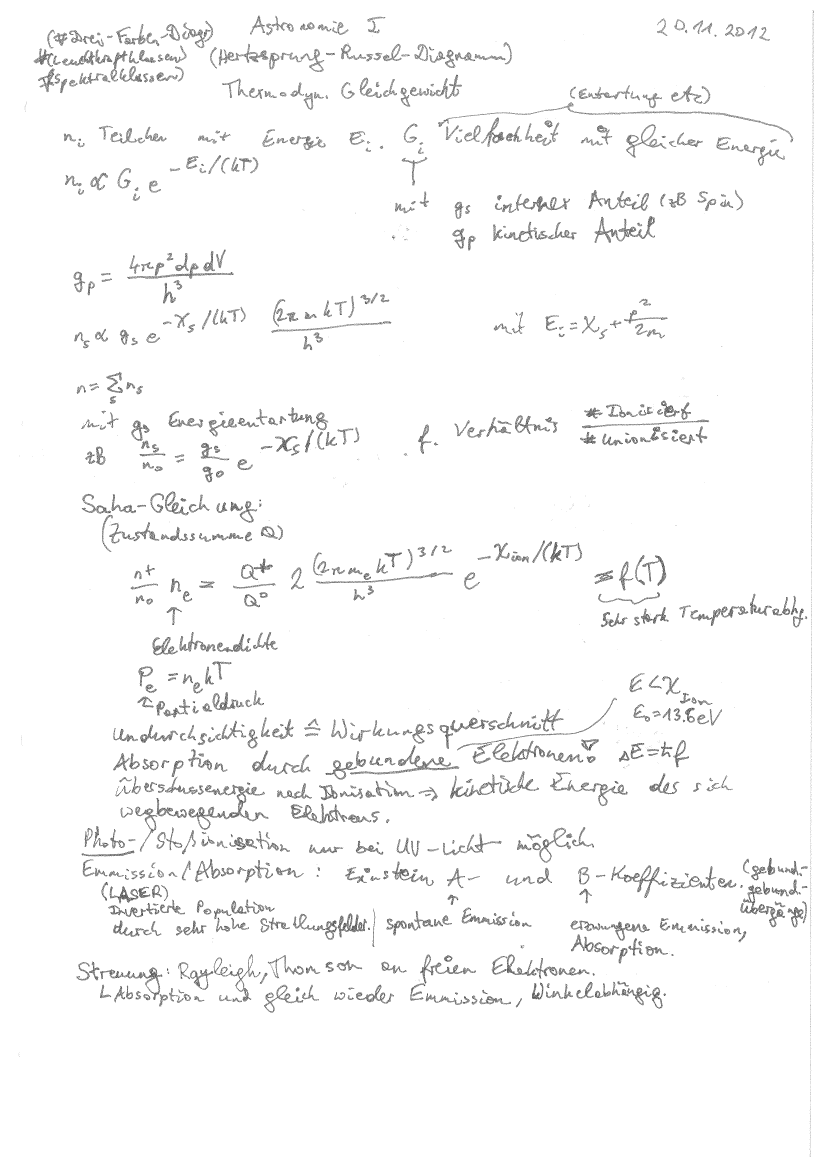 (#Drei-Farben-Diagr) Astronomie I 20.11.2012
#(Leuchtkraftklassen) (Hertzsprung-Russel-Diagramm)
#Spektralklassen)
Thermodyn. Gleichgewicht (Entartung etc)
n_i Teilchen mit Energie E_i. G_i Vielfachheit mit gleicher Energie
n_i ∝ G_i e^{-E_i/(kT)}
mit g_s interner Anteil (zB Spin)
g_p kinetischer Anteil
g_p = \frac{4πp² dp dV}{h³}
n_s ∝ g_s e^{-χ_s/(kT)} \frac{(2π m kT)^{3/2}}{h³} mit E_i = χ_s + \frac{p²}{2m}
n = Σ_s n_s
mit g_s Energieentartung
zB \frac{n_s}{n_0} = \frac{g_s}{g_0} e^{-χ_s/(kT)} f. Verhältnis \frac{# Ionisiert}{# Unionisiert}
Saha-Gleichung:
(Zustandssumme Q)
\frac{n^+}{n_0} n_e = \frac{Q^+}{Q^0} 2 \frac{(2π m_e kT)^{3/2}}{h³} e^{-χ_ion/(kT)} = f(T)
↑ Sehr stark Temperaturabhg.
Elektronendichte
P_e = n_e kT
↑Partialdruck E<χ_Ion
E_0=13.6eV
Undurchsichtigkeit ≙ Wirkungsquerschnitt
Absorption durch gebundene Elektronen! ΔE=ħf
Überschussenergie nach Ionisation ⇒ kinetische Energie des sich
wegbewegenden Elektrons.
Photo-/Stoßionisation nur bei UV-Licht möglich.
Emmission/Absorption: Einstein A- und B-Koeffizienten. (gebund-gebund-übergänge)
(LASER) ↑ ↑
Invertierte Population
durch sehr hohe Strahlungsfelder. | spontane Emmission erzwungene Emmission,
Absorption.
Streuung: Rayleigh, Thomson an freien Elektronen.
↳Absorption und gleich wieder Emmission, Winkelabhängig.